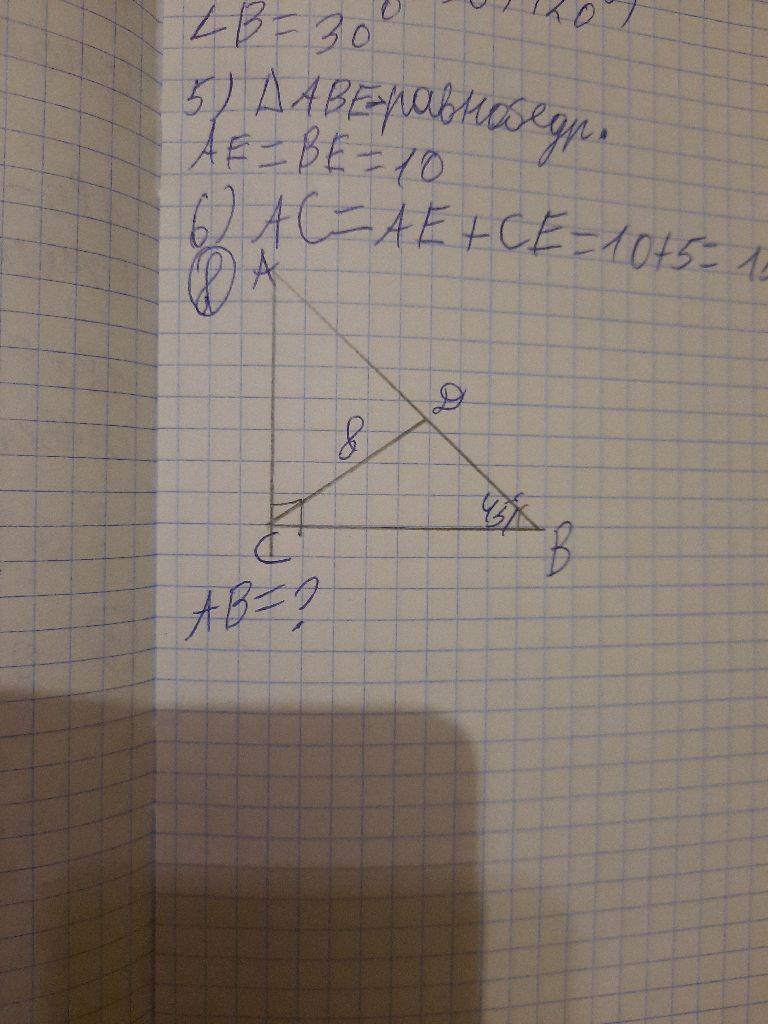 ∠B = 30°
5) ΔABE-равнобедр.
AE = BE = 10
6) AC = AE + CE = 10+5 = 15
8 A
D
8
45°
C B
AB = ?